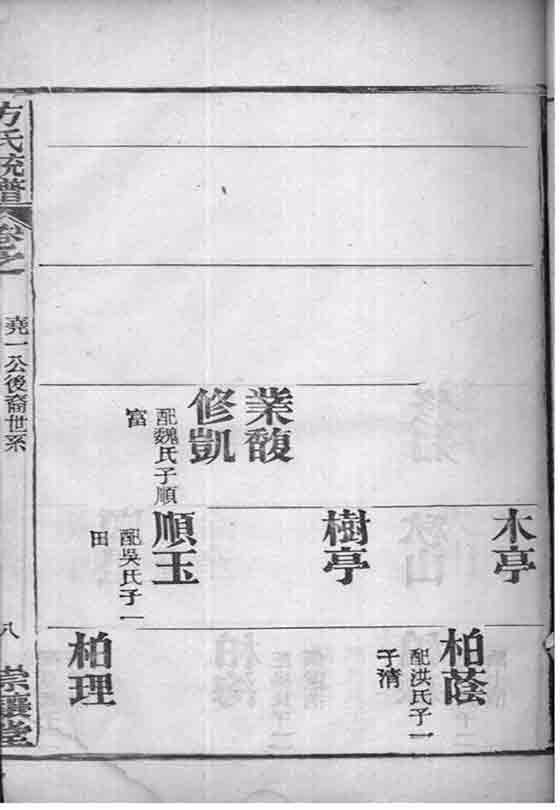 業馥
修凱
配魏氏子順
富
木亭
樹亭
順玉
配吳氏子一
田
柏蔭
配洪氏子一
于清
柏理
方氏統譜
卷之一
堯一公後裔世系
八
崇讓堂